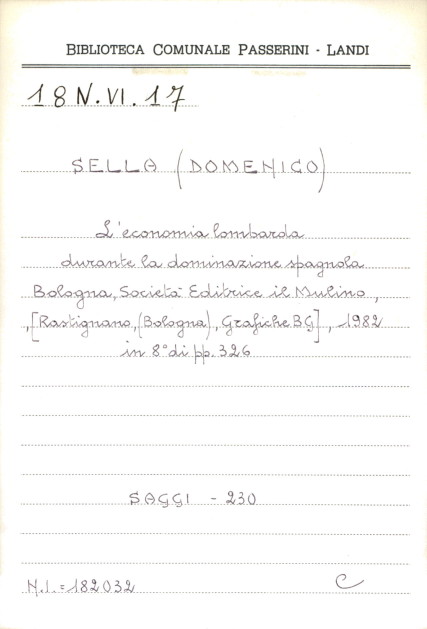 BIBLIOTECA COMUNALE PASSERINI - LANDI
18 N. VI. 17
SELLA (DOMENICO)
L'economia lombarda
durante la dominazione spagnola
Bologna, Società Editrice il Mulino,
,[Rastignano, (Bologna), Grafiche BG], 1982
in 8° di pp. 326
SAGGI - 230
N.I. = 182032
C